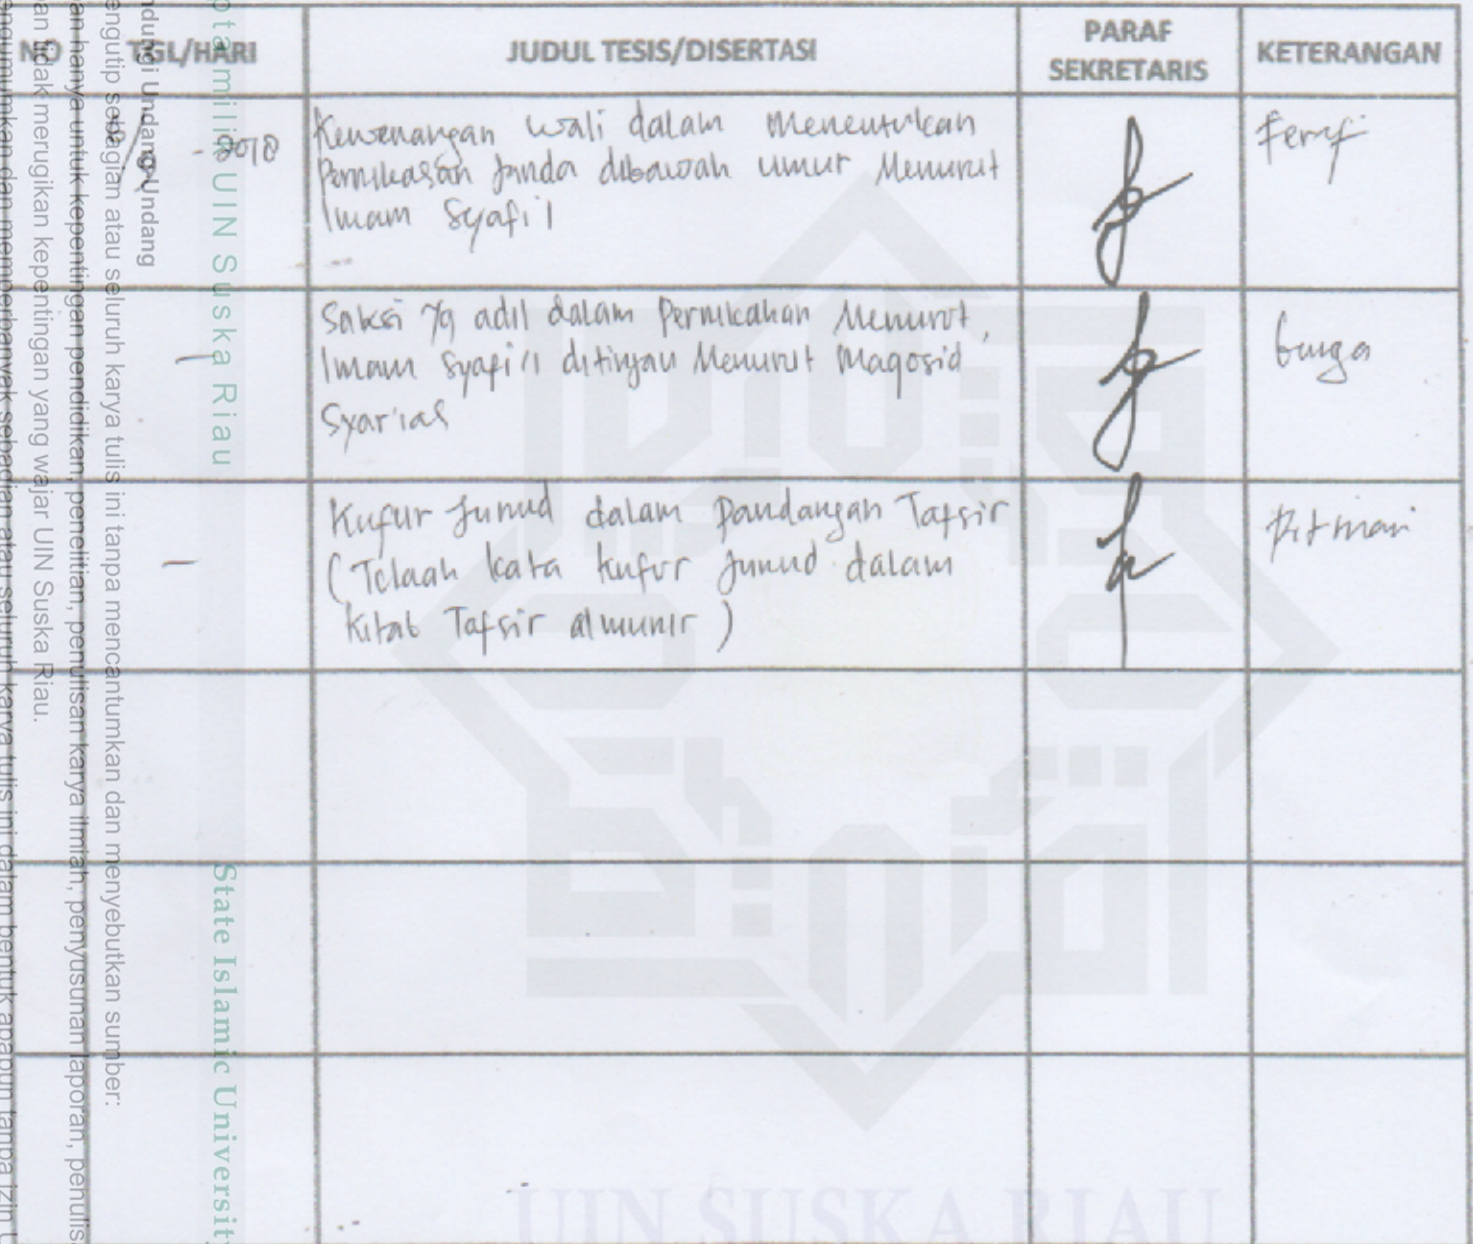 NO TGL/HARI JUDUL TESIS/DISERTASI PARAF SEKRETARIS KETERANGAN
- 2018
Kewenangan wali dalam Menentukan
Pernikahan Janda dibawah umur Menurut
Imam Syafi'i
Saksi yg adil dalam Pernikahan Menurut,
Imam Syafi'i ditinjau Menurut Maqosid
Syar'iah
Kufur Junud dalam Pandangan Tafsir
(Telaah kata kufur Junud dalam
Kitab Tafsir almunir)
Pitman
ndungi Undang-Undang
engutip sebagian atau seluruh karya tulis ini tanpa mencantumkan dan menyebutkan sumber:
an hanya untuk kepentingan pendidikan, penelitian, penulisan karya ilmiah, penyusunan laporan, penulis
an tidak merugikan kepentingan yang wajar UIN Suska Riau.
engumumkan dan memperbanyak sebagian atau seluruh karya tulis ini dalam bentuk apapun tanpa izin U
pta milik UIN Suska Riau
State Islamic Universit
UIN SUSKA RIAU